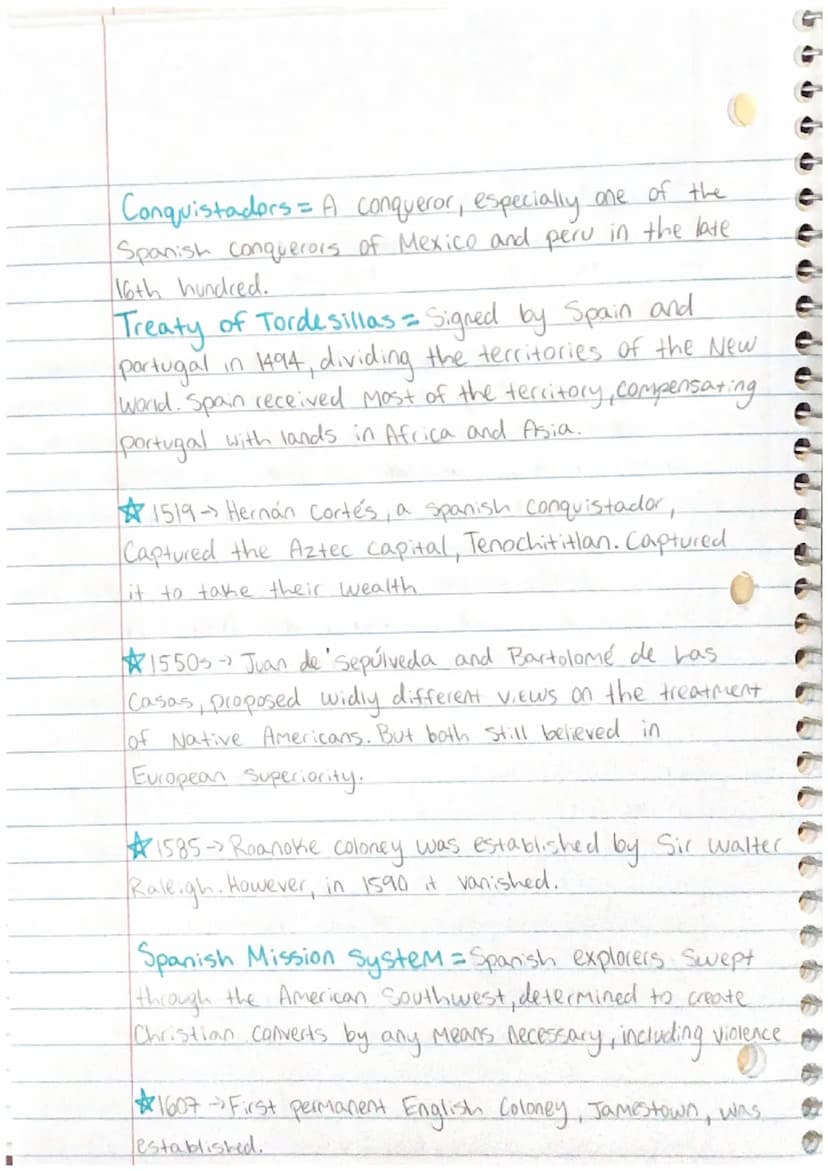 Conquistadors = A conqueror, especially one of the
Spanish conquerors of Mexico and peru in the late
16th hundred.
Treaty of Tordesillas = Signed by Spain and
portugal in 1494, dividing the territories of the New
World. Spain received Most of the territory, compensating
portugal with lands in Africa and Asia.
☆ 1519 → Hernán Cortés, a spanish conquistador,
Captured the Aztec capital, Tenochititlan. Captured
it to take their wealth
☆ 1550s → Juan de 'Sepúlveda and Bartolomé de Las
Casas, proposed widly different views on the treatment
of Native Americans. But both still believed in
European superiority.
☆ 1585 → Roanoke coloney was established by Sir Walter
Raleigh. However, in 1590 it vanished.
Spanish Mission System = Spanish explorers swept
through the American Southwest, determined to create
Christian converts by any means necessary, including violence
☆ 1607 → First permanent English Coloney, Jamestown, was
established.